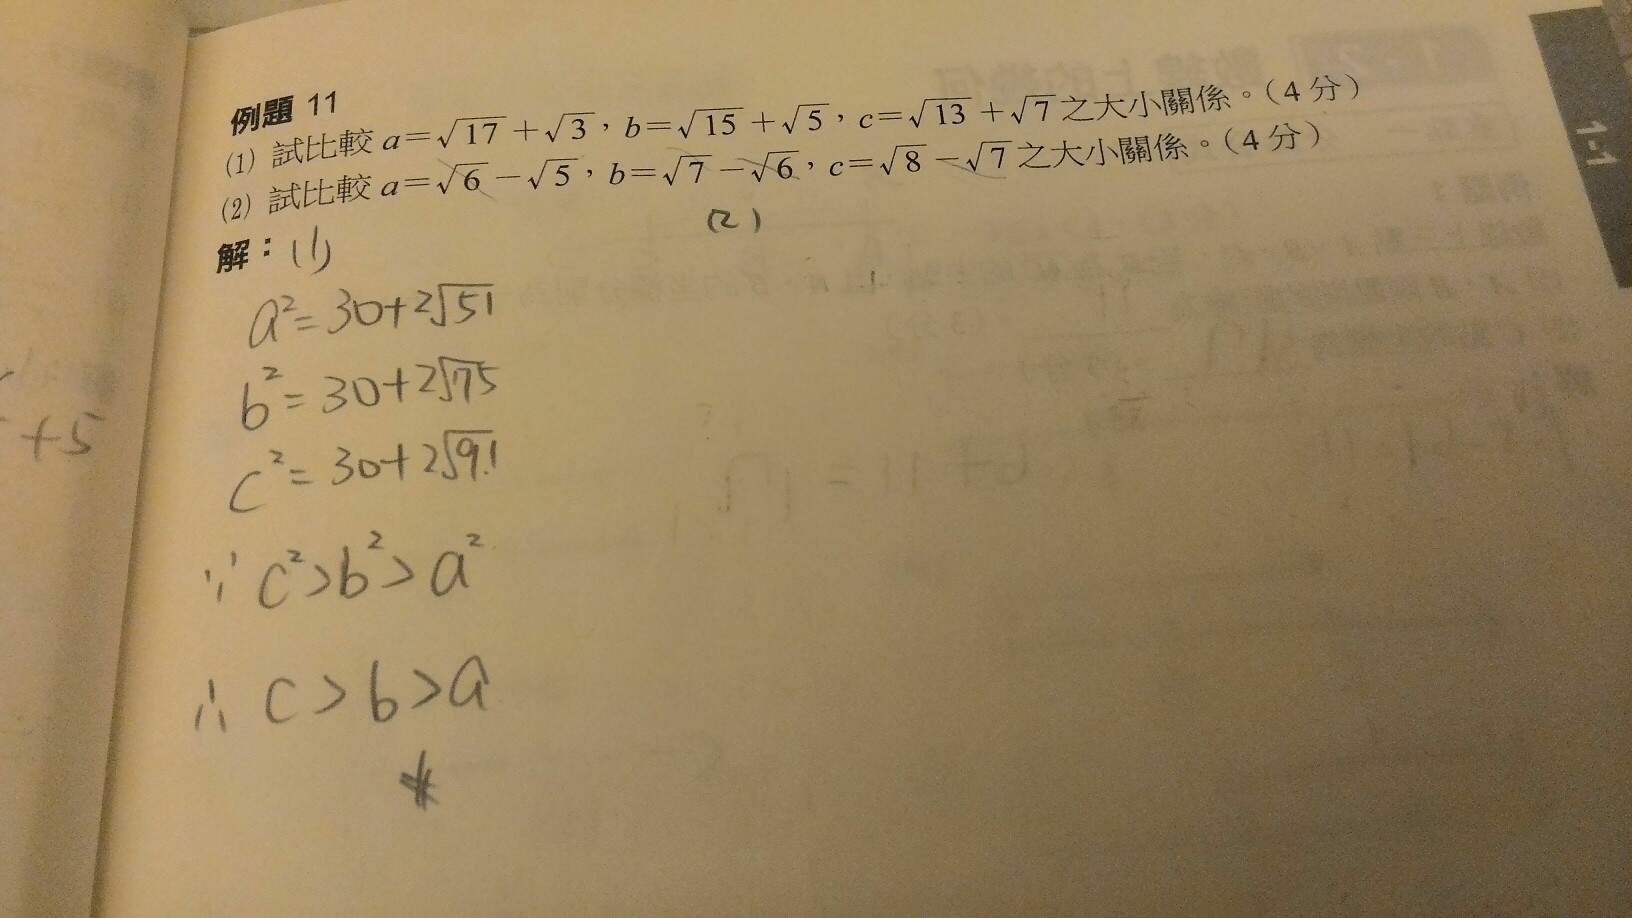 例題 11
(1) 試比較 a=√17+√3，b=√15+√5，c=√13+√7之大小關係。(4分)
(2) 試比較 a=√6−√5，b=√7−√6，c=√8−√7之大小關係。(4分)
解：(1)
(2)
a²=30+2√51
b²=30+2√75
c²=30+2√91
∵ c²>b²>a²
∴ c>b>a
+5
1-1